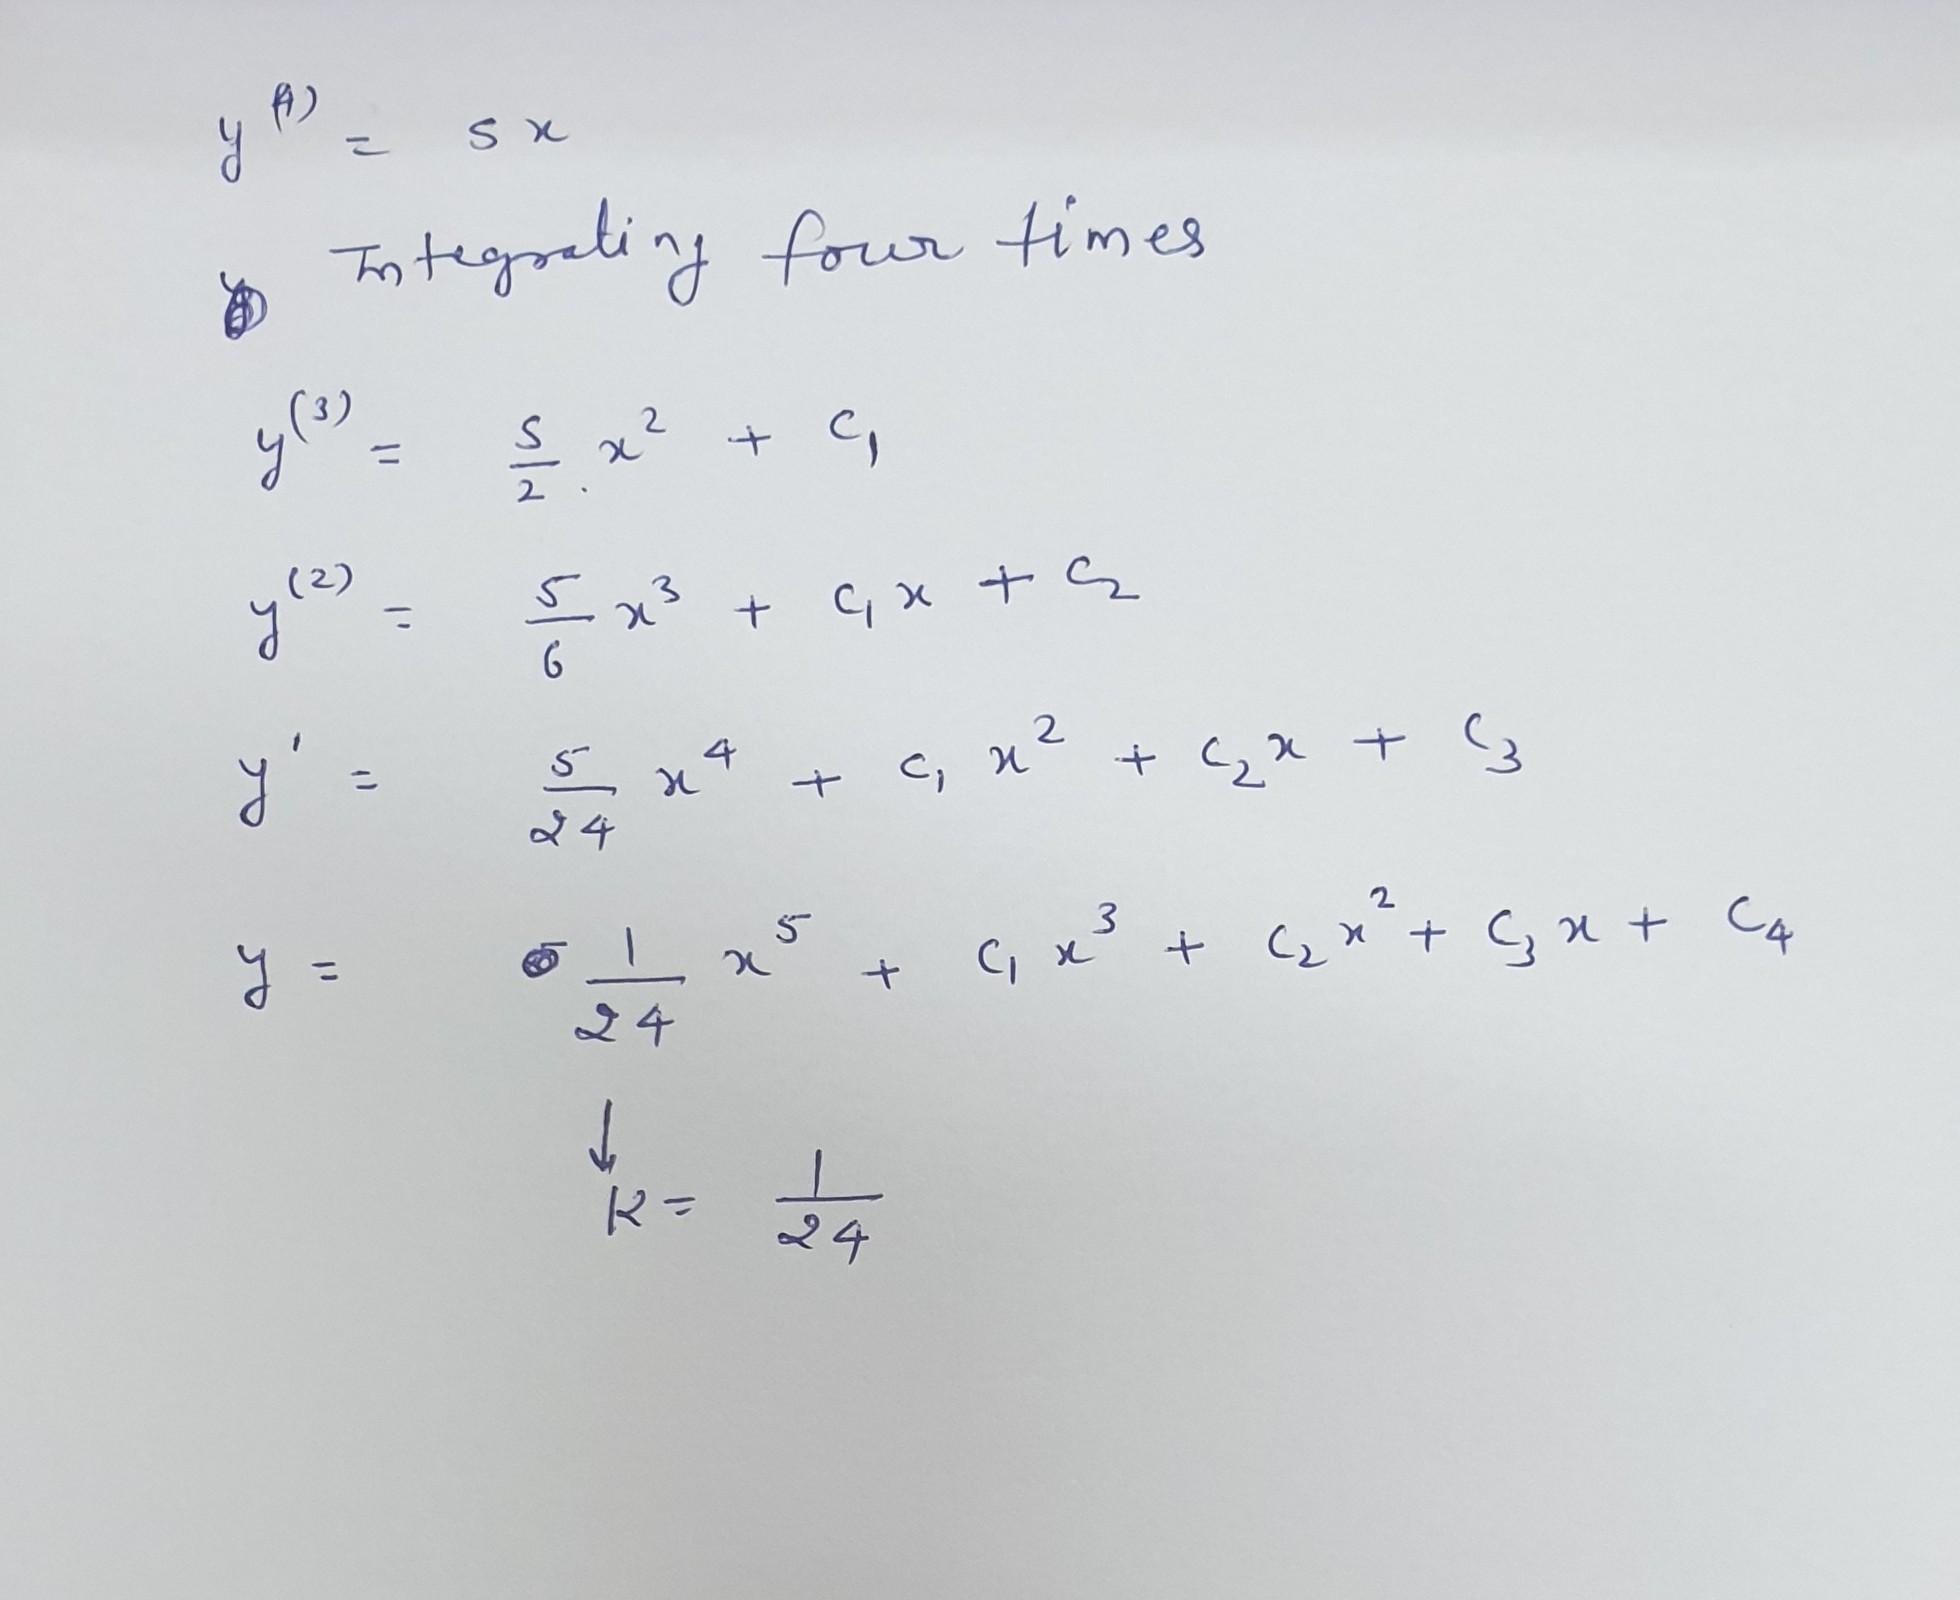 y⁽⁴⁾ = 5x
Integrating four times
y⁽³⁾ = 5/2 . x² + C₁
y⁽²⁾ = 5/6 x³ + C₁x + C₂
y' = 5/24 x⁴ + C₁ x² + C₂x + C₃
y = 1/24 x⁵ + C₁ x³ + C₂x² + C₃x + C₄
↓
K = 1/24